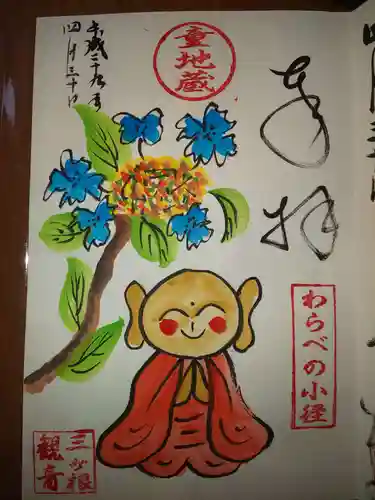 奉拝
わらべの小径
童地蔵
平成二十九年
四月三十日
観音